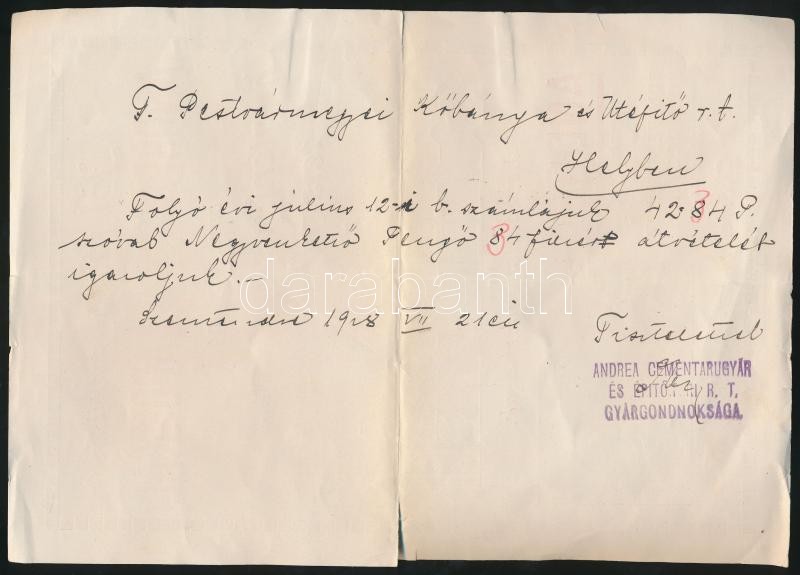 T. Pestvármegyei Kőbánya és Utépitő r.t.
Helyben
Folyó évi július 12-i b. számlájuk 42.84 P.
3
szóval Negyvenkettő Pengő 84 fillér átvételét
3
igazoljuk.–
Szentendre 1928 VII 21én
Tisztelettel
ANDREA CEMENTARUGYÁR
ÉS ÉPITŐ R. T.
GYÁRGONDNOKSÁGA.
darabanth